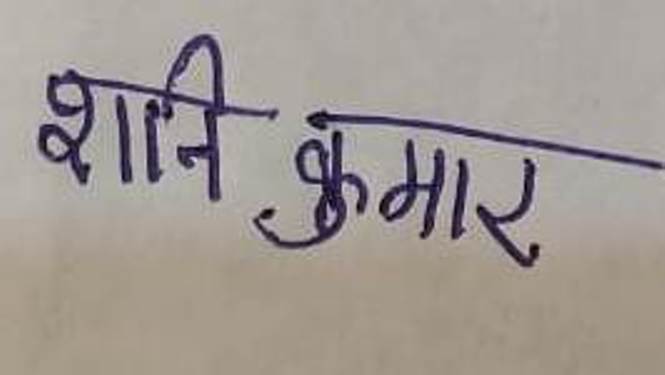 शानि कुमार